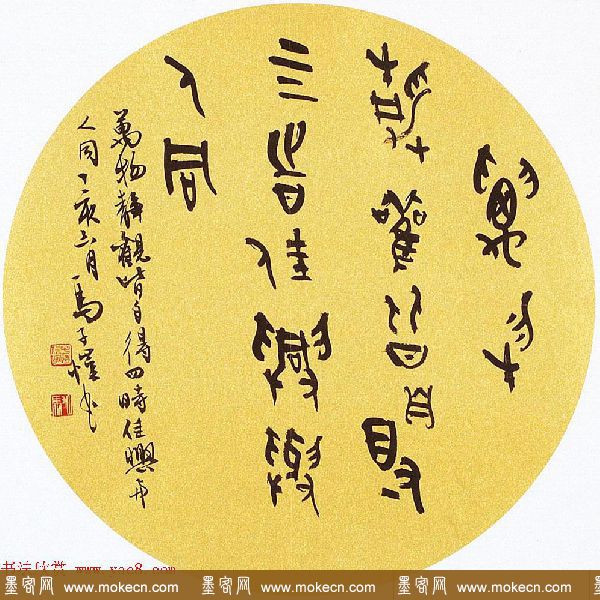 萬物
靜觀皆自得
四時佳興與
人同
萬物靜觀皆自得四時佳興与
人同丁亥六月馬子愷書
书法欣赏 www.yac8.com
墨客网 www.mokecn.com 墨客网 www.mokecn.com 墨客网 www.mokecn.com